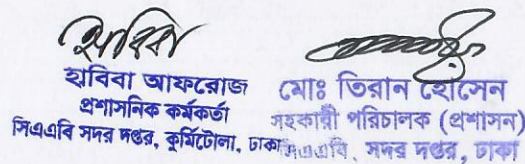 হাবিবা
হাবিবা আফরোজ
প্রশাসনিক কর্মকর্তা
সিএএবি সদর দপ্তর, কুর্মিটোলা, ঢাকা
মোঃ তিরান হোসেন
সহকারী পরিচালক (প্রশাসন)
সিএএবি, সদর দপ্তর, ঢাকা